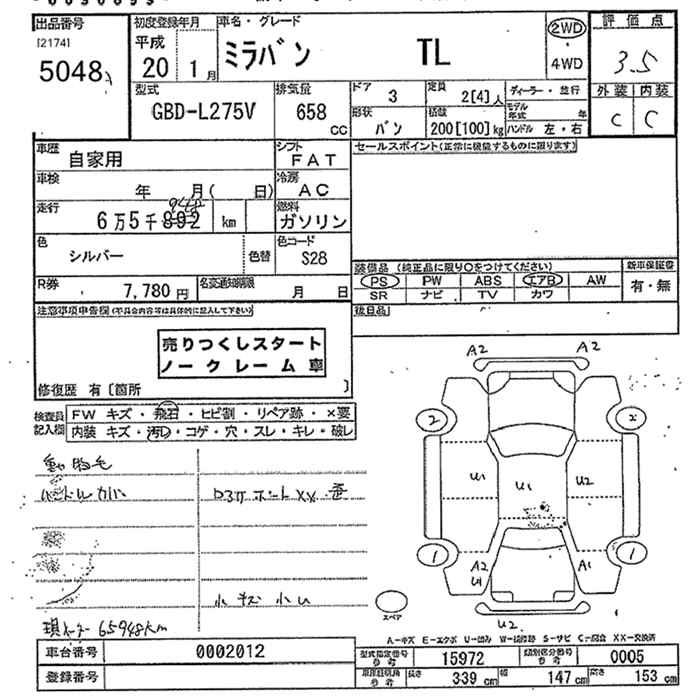 出品番号
[2174]
5048
初度登録年月
平成
20 1月
車名・グレード
ミラバン TL
2WD
・
4WD
評価点
3.5
外装 内装
C C
型式
GBD-L275V
排気量
658
CC
ドア
3
定員
2[4]人
ディーラー・並行
形状
バン
積載
200[100]kg
モデル
年式 年
ハンドル 左・右
車歴
自家用
シフト
FAT
車検
年 月( 日)
冷房
AC
走行
948
6万5千892 km
燃料
ガソリン
色
シルバー
色替
色コード
S28
R券
7,780円
名変通知期限
月 日
セールスポイント(正常に機能するものに限ります)
装備品(純正品に限り○をつけてください)
PS PW ABS エアB AW
SR ナビ TV カワ
新車保証書
有・無
後日品
注意事項申告欄(不具合内容等は具体的に記入して下さい)
売りつくしスタート
ノークレーム車
修復歴 有[箇所 ]
検査員
記入欄
FW キズ・飛石・ヒビ割・リペア跡・×要
内装 キズ・汚レ・コゲ・穴・スレ・キレ・破レ
動物毛
ハンドルカバー
コアサポートXX 歪
小キズ 小U
現メーター 65948km
A2 A2
2 2
U1 U1 U2
1 1
A2
U1
A1
U2
スペア
A-キズ E-エクボ U-凹み W-補修跡 S-サビ C-腐食 XX-交換済
車台番号
0002012
登録番号
型式指定番号
参考
15972
類別区分番号
参考
0005
車庫証明用
参考
長さ 339cm 幅 147cm 高さ 153cm